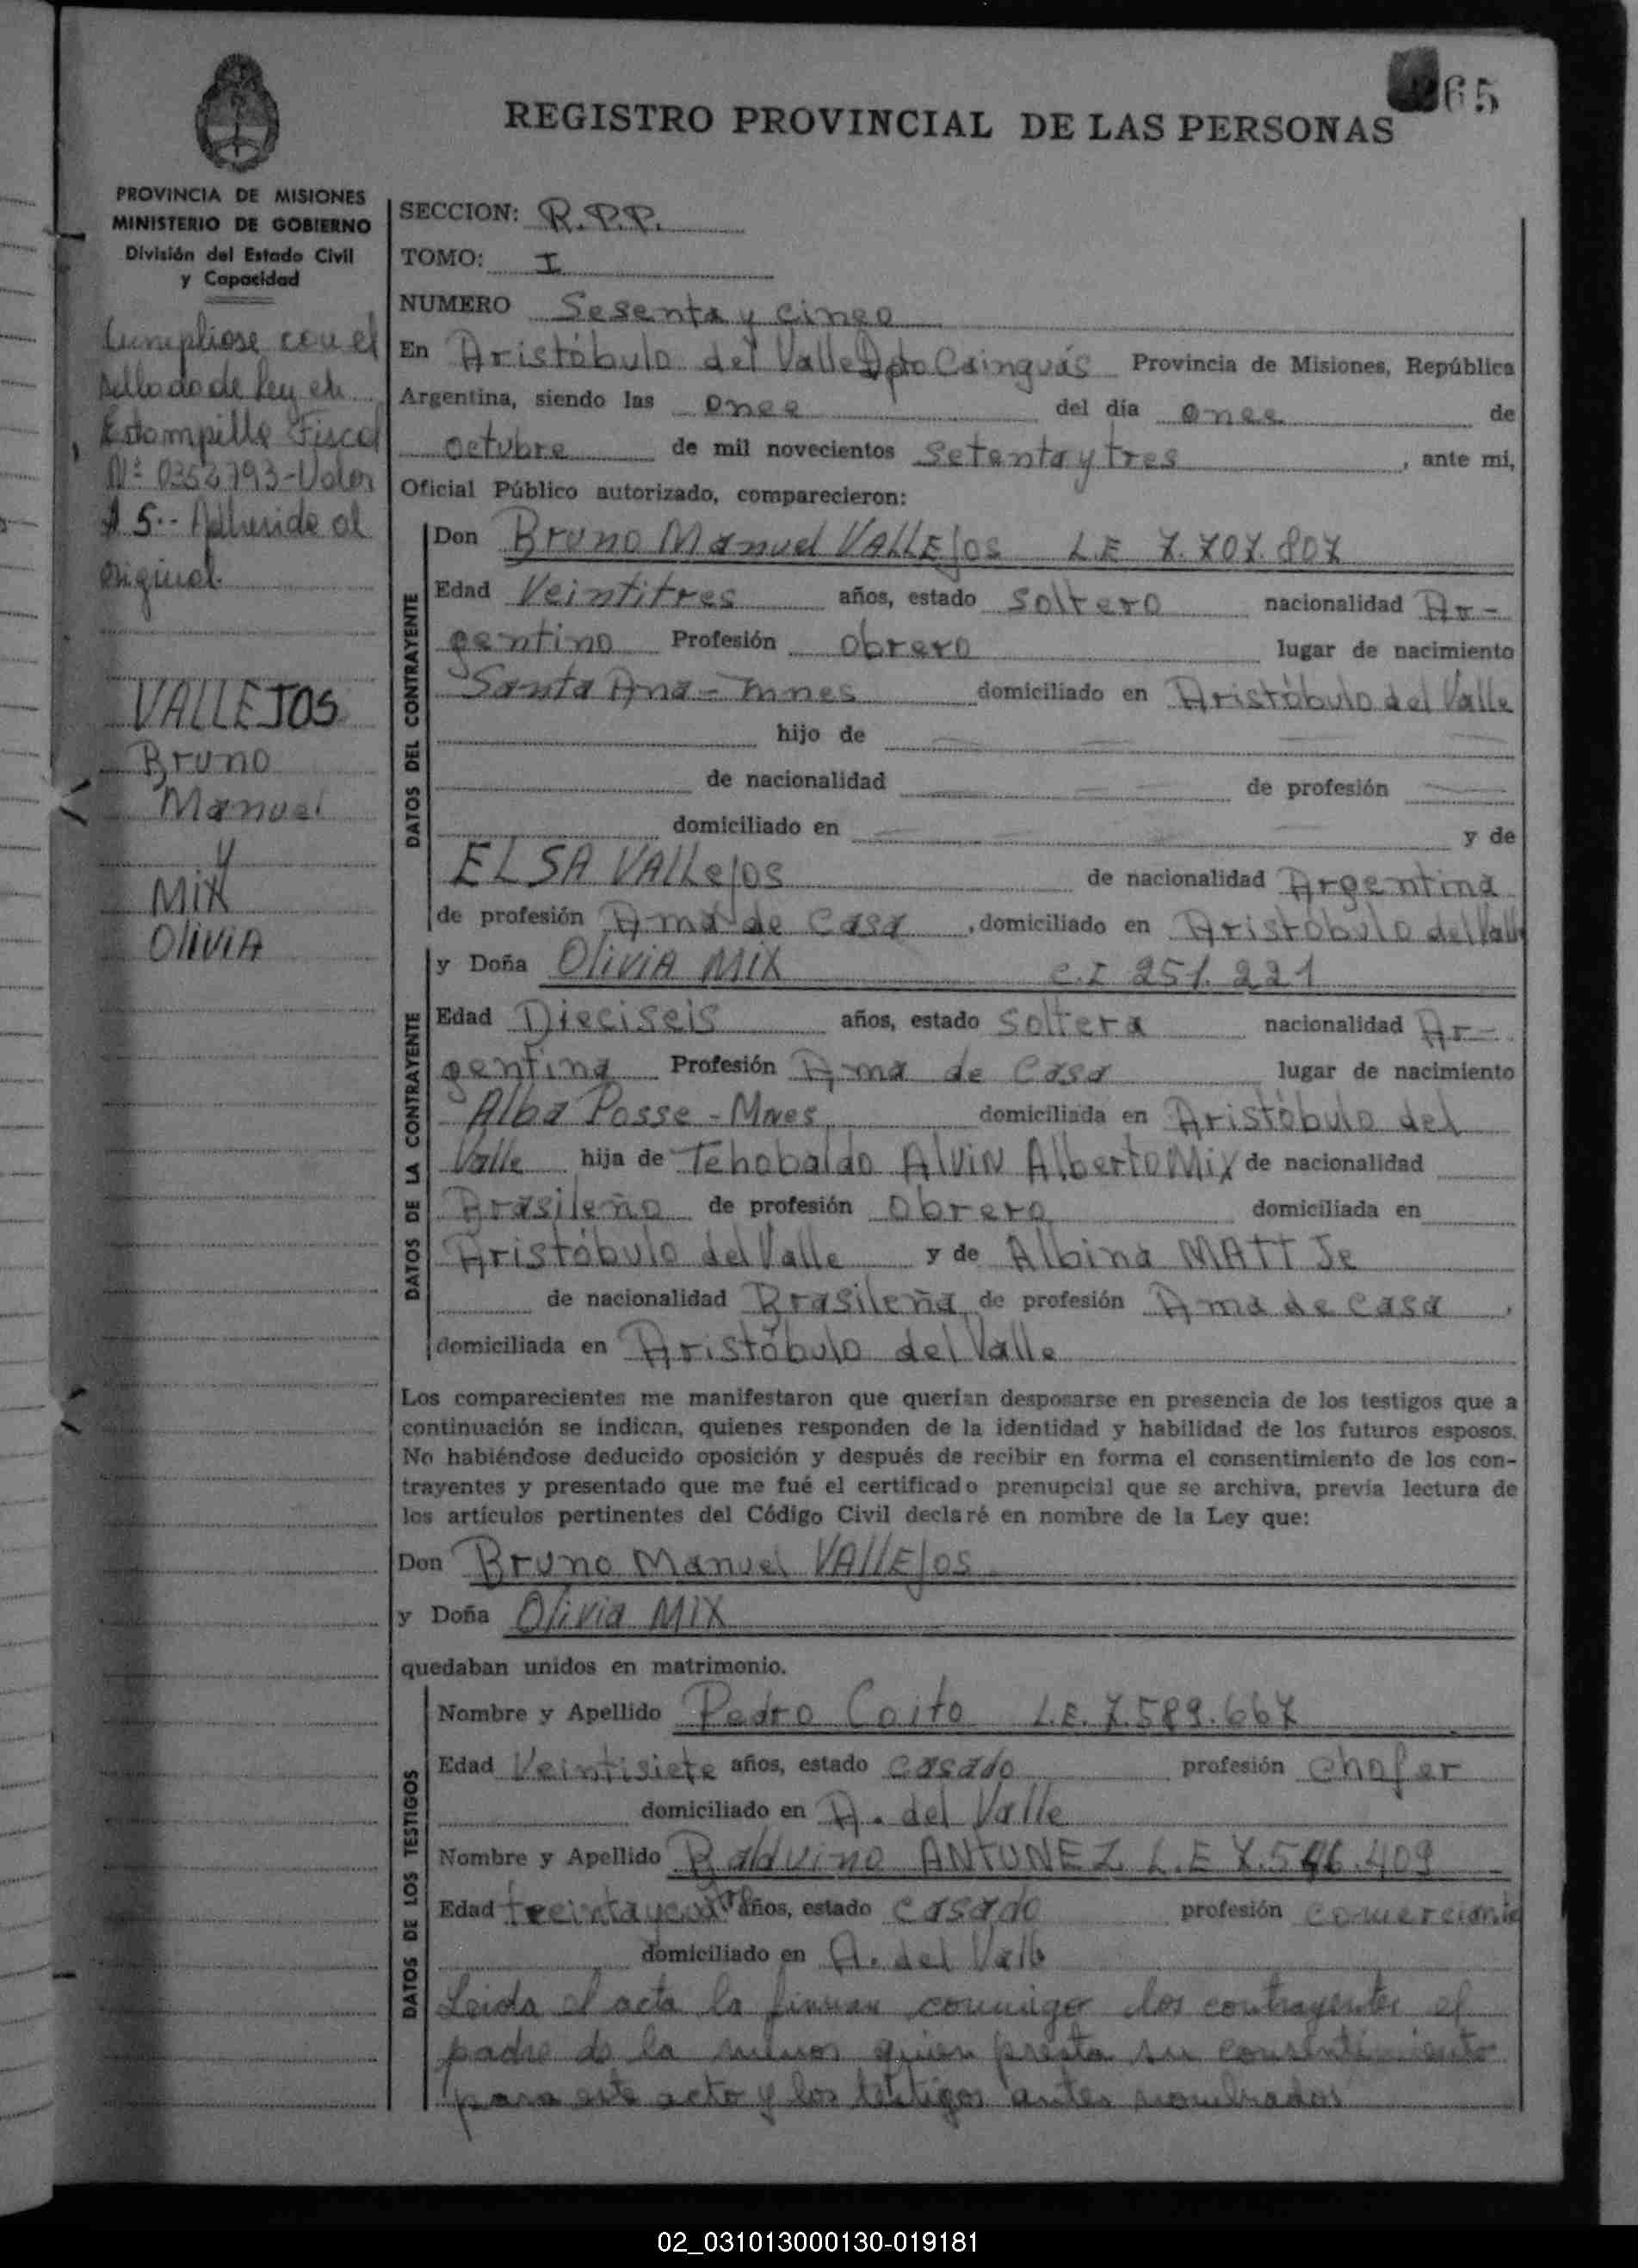 65
REGISTRO PROVINCIAL DE LAS PERSONAS
PROVINCIA DE MISIONES
MINISTERIO DE GOBIERNO
División del Estado Civil
y Capacidad
Cumpliose con el
sellado de Ley en
Estampilla Fiscal
Nº 0352793-Valor
$ 5.- Adherido al
original
VALLEJOS
Bruno
Manuel
y
MIX
OliviA
SECCION: R.P.P.
TOMO: I
NUMERO Sesenta y cinco
En Aristóbulo del Valle Dpto Cainguás Provincia de Misiones, República
Argentina, siendo las once del día once de
octubre de mil novecientos setenta y tres, ante mi,
Oficial Público autorizado, comparecieron:
DATOS DEL CONTRAYENTE
Don Bruno Manuel VALLEjos L.E 7.707.807
Edad Veintitres años, estado soltero nacionalidad Ar-
gentino Profesión obrero lugar de nacimiento
Santa Ana - Mnes domiciliado en Aristóbulo del Valle
hijo de
de nacionalidad de profesión
domiciliado en y de
ELSA VALLejos de nacionalidad Argentina
de profesión Ama de casa, domiciliado en Aristóbulo del Valle
DATOS DE LA CONTRAYENTE
y Doña OliviA MIX C.I 251.221
Edad Dieciseis años, estado soltera nacionalidad Ar-
gentina Profesión Ama de casa lugar de nacimiento
Alba Posse - Mnes domiciliada en Aristóbulo del
Valle hija de Tehobaldo AlviN Alberto Mix de nacionalidad
Brasileño de profesión obrero domiciliada en
Aristóbulo del Valle y de Albina MATTJe
de nacionalidad Brasileña de profesión Ama de casa,
domiciliada en Aristóbulo del Valle
Los comparecientes me manifestaron que querían desposarse en presencia de los testigos que a
continuación se indican, quienes responden de la identidad y habilidad de los futuros esposos.
No habiéndose deducido oposición y después de recibir en forma el consentimiento de los con-
trayentes y presentado que me fué el certificado prenupcial que se archiva, previa lectura de
los artículos pertinentes del Código Civil declaré en nombre de la Ley que:
Don Bruno Manuel VAllEjos
y Doña Olivia MIX
quedaban unidos en matrimonio.
DATOS DE LOS TESTIGOS
Nombre y Apellido Pedro Coito L.E. 7.589.667
Edad Veintisiete años, estado casado profesión chofer
domiciliado en A. del Valle
Nombre y Apellido Balduino ANTUNEZ L.E 7.546.409
Edad treinta y años, estado casado profesión comerciante
domiciliado en A. del Valle
Leida el acta la firman conmigo los contrayentes el
padre de la menor quien presta su consentimiento
para este acto y los testigos antes nombrados
02_031013000130-019181